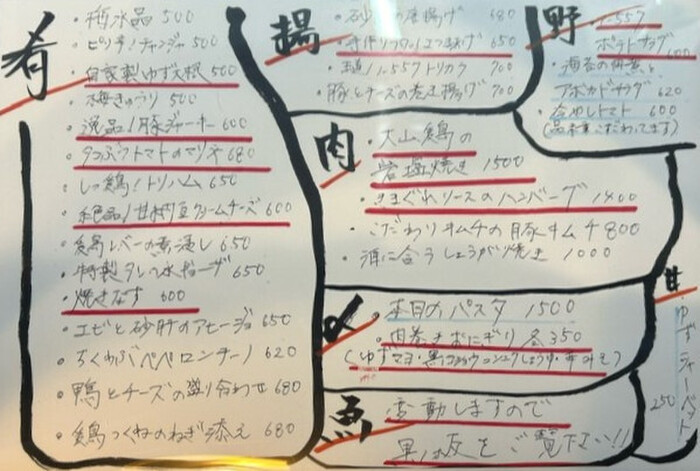 肴
・梅水晶 500
・ピリ辛!チャンジャ 500
・自家製ゆず大根 500
・梅きゅうり 500
・逸品!豚ジャーキー 600
・タコぶつトマトのマリネ 680
・しっ鶏!トリハム 650
・絶品!甘納豆クリームチーズ 600
・鶏レバーの煮通し 650
・特製タレの水ギョーザ 650
・焼きなす 600
・エビと砂肝のアヒージョ 650
・ちくわぶペペロンチーノ 620
・鴨とチーズの盛り合わせ 680
・鶏つくねのねぎ添え 680
揚
・砂肝の唐揚げ 680
・手作りワンタン 650
トリカワ 700
・豚とチーズの巻き揚げ 700
野
ポテトサラダ
・海苔の佃煮と
アボカドサラダ 620
・冷やしトマト 600
(品種にこだわってます)
肉
・大山鶏の
岩塩焼き 1500
・きまぐれソースのハンバーグ 1400
・こだわりキムチの豚キムチ 800
・酒に合うしょうが焼き 1000
〆
・本日のパスタ 1500
・肉巻きおにぎり 各350
魚
変動しますので
黒板をご覧下さい!!
甘
・ゆずシャーベット
250